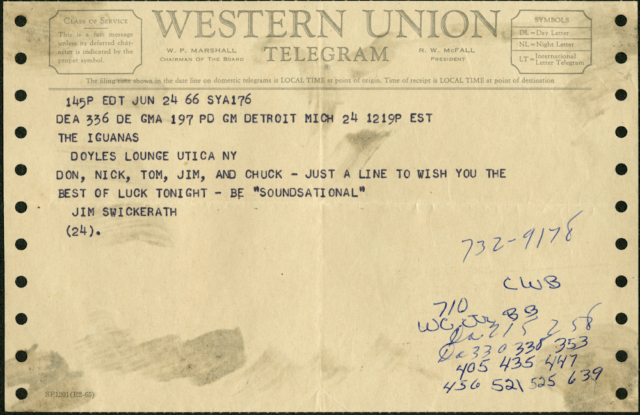 CLASS OF SERVICE
This is a fast message
unless its deferred char-
acter is indicated by the
proper symbol.
WESTERN UNION
TELEGRAM
W. P. MARSHALL
CHAIRMAN OF THE BOARD
R. W. McFALL
PRESIDENT
SYMBOLS
DL=Day Letter
NL=Night Letter
LT=International Letter Telegram
The filing time shown in the date line on domestic telegrams is LOCAL TIME at point of origin. Time of receipt is LOCAL TIME at point of destination
145P EDT JUN 24 66 SYA176
DEA 336 DE GMA 197 PD GM DETROIT MICH 24 1219P EST
THE IGUANAS
DOYLES LOUNGE UTICA NY
DON, NICK, TOM, JIM, AND CHUCK - JUST A LINE TO WISH YOU THE
BEST OF LUCK TONIGHT - BE "SOUNDSATIONAL"
JIM SWICKERATH
(24).
732-9178
CWB
710
BB
215 258
330 338 353
405 435 447
456 521 525 639
SF1201(R2-65)